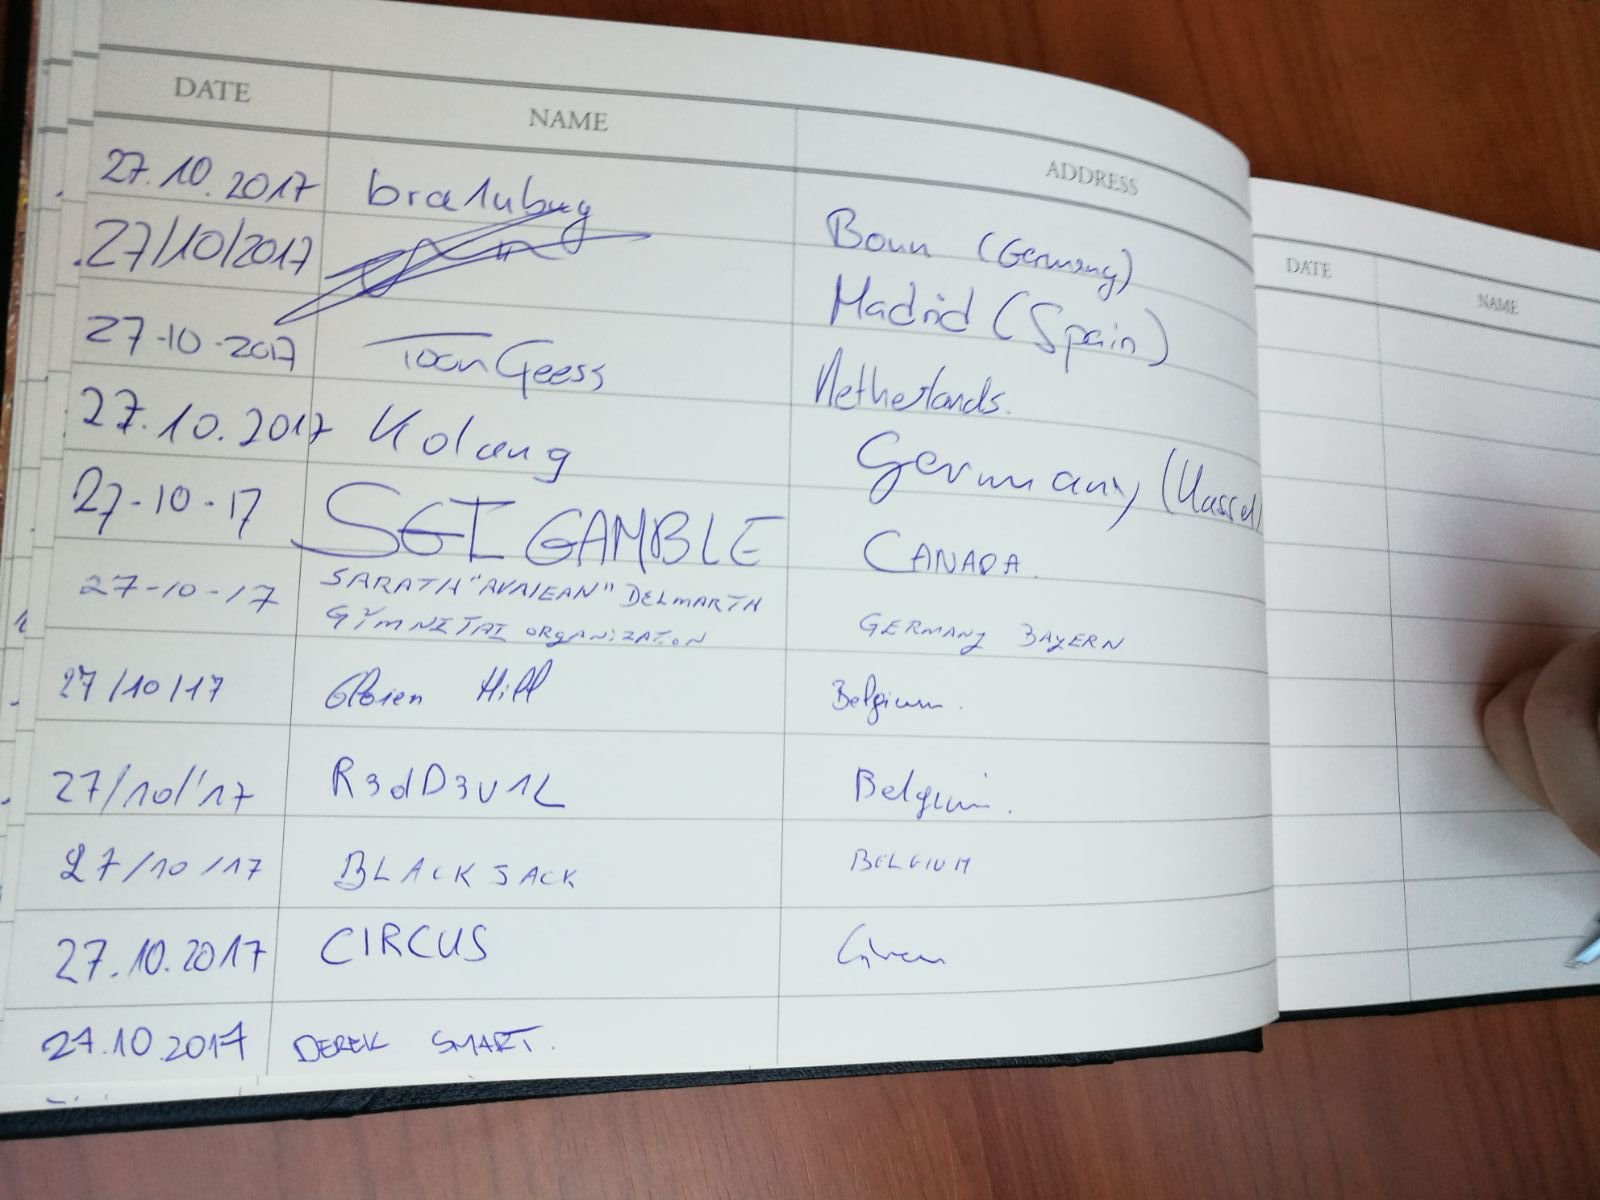 DATE NAME ADDRESS
27.10.2017 Bonn (Germany)
27/10/2017 Madrid (Spain)
27-10-2017 Toon Geess Netherlands.
27.10.2017 Kolaug Germany (Kassel)
27-10-17 SGT GAMBLE CANADA.
27-10-17 SARATH "AVALEAN" DELMARTH
ORGANIZATION GERMANY BAYERN
27/10/17 Hill Belgium.
27/10/'17 R3dD3v1L Belgium.
27/10/17 BLACKJACK BELGIUM
27.10.2017 CIRCUS
27.10.2017 DEREK SMART.
DATE NAME